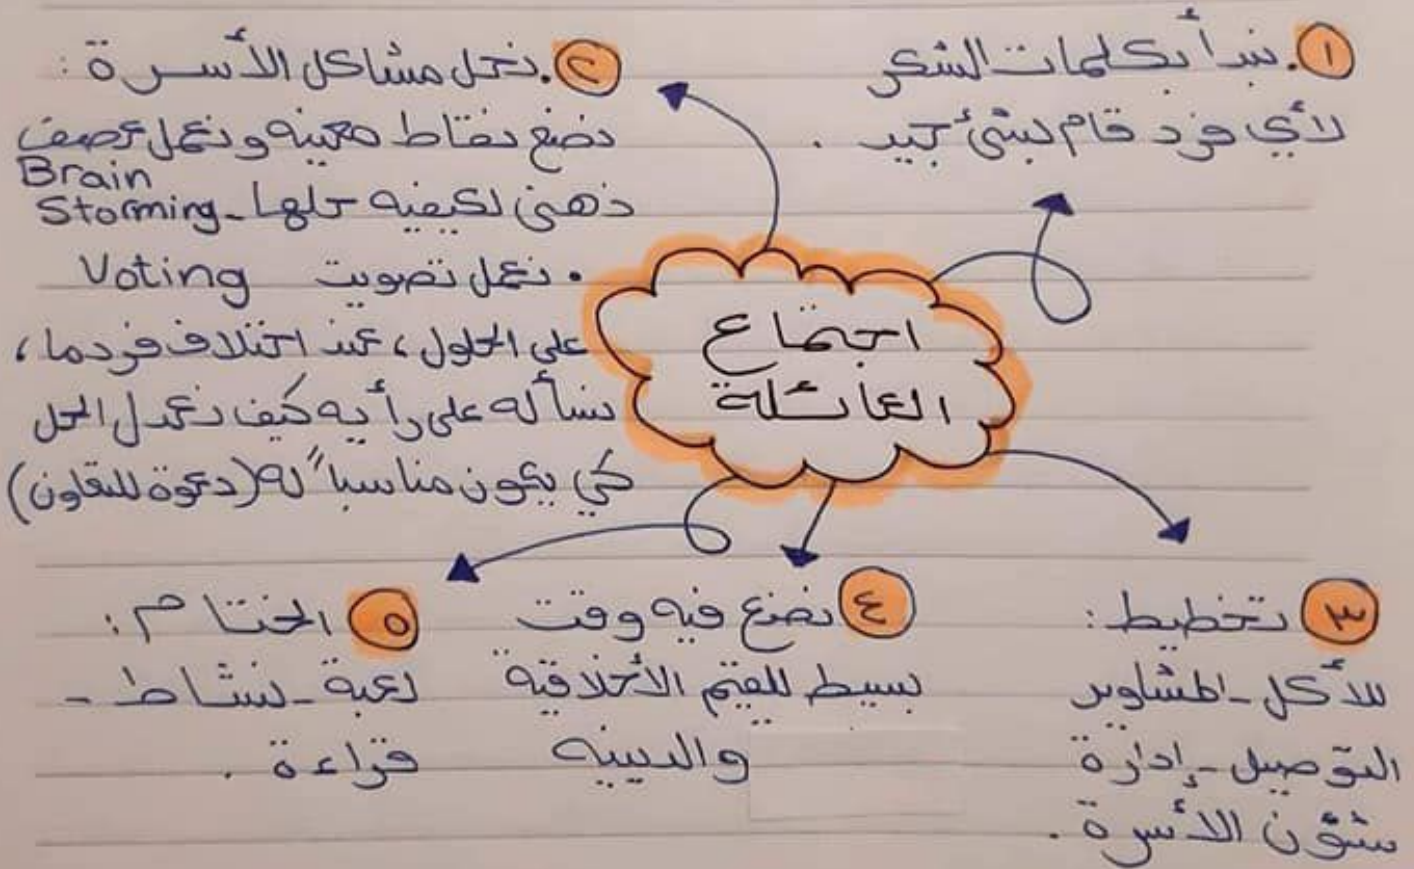 اجتماع
العائلة
١. نبدأ بكلمات الشكر
لأي فرد قام بشئ جيد .
٢. نحل مشاكل الأسرة :
نضع نقاط معينه ونعمل عصف
ذهني لكيفيه حلها - Brain
Storming
• نعمل تصويت Voting
على الحلول ، عند اختلاف فرد ما ،
نسأله على رأيه كيف نعدل الحل
كي يكون مناسباً له (دعوة للتعاون)
٣ تخطيط :
للأكل - المشاوير
التوصيل - إدارة
شؤن الأسرة .
٤ نضع فيه وقت
بسيط للقيم الأخلاقية
والدينيه
٥ الختام :
لعبة - نشاط -
قراءة .